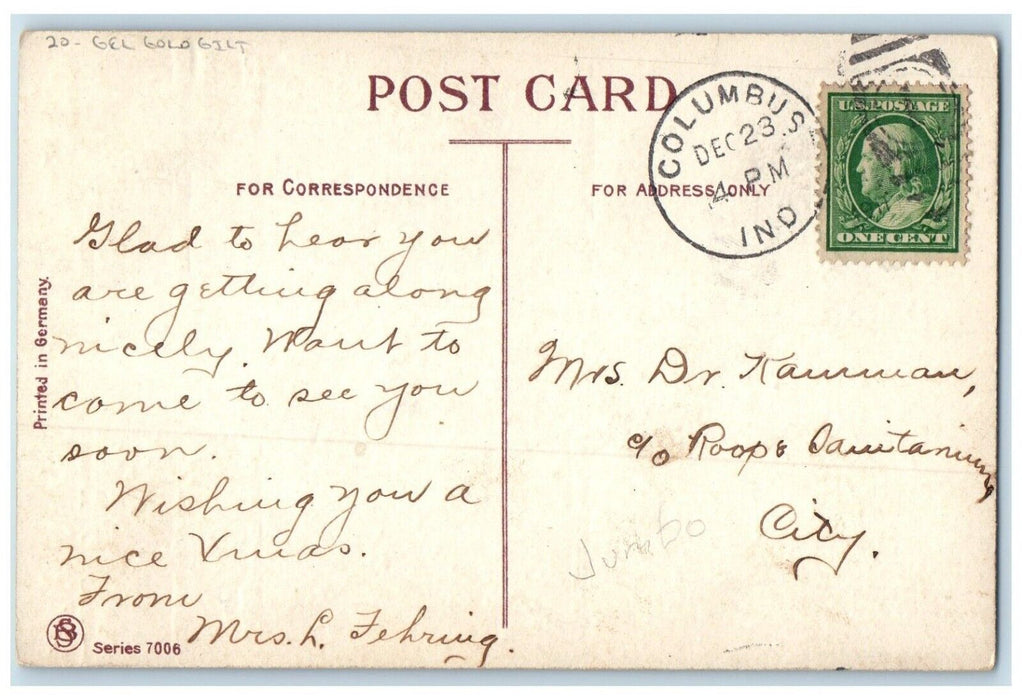 20- GEL GOLD GILT
POST CARD
COLUMBUS
DEC 23
4 PM
IND
U.S. POSTAGE
ONE CENT
FOR CORRESPONDENCE
FOR ADDRESS ONLY
Glad to hear you
are getting along
nicely. Want to
come to see you
soon.
Wishing you a
nice Xmas.
From
Mrs. L. Fehring.
Mrs. Dr.
c/o Roope Sanitarium
City.
Jumbo
Printed in Germany.
Series 7006